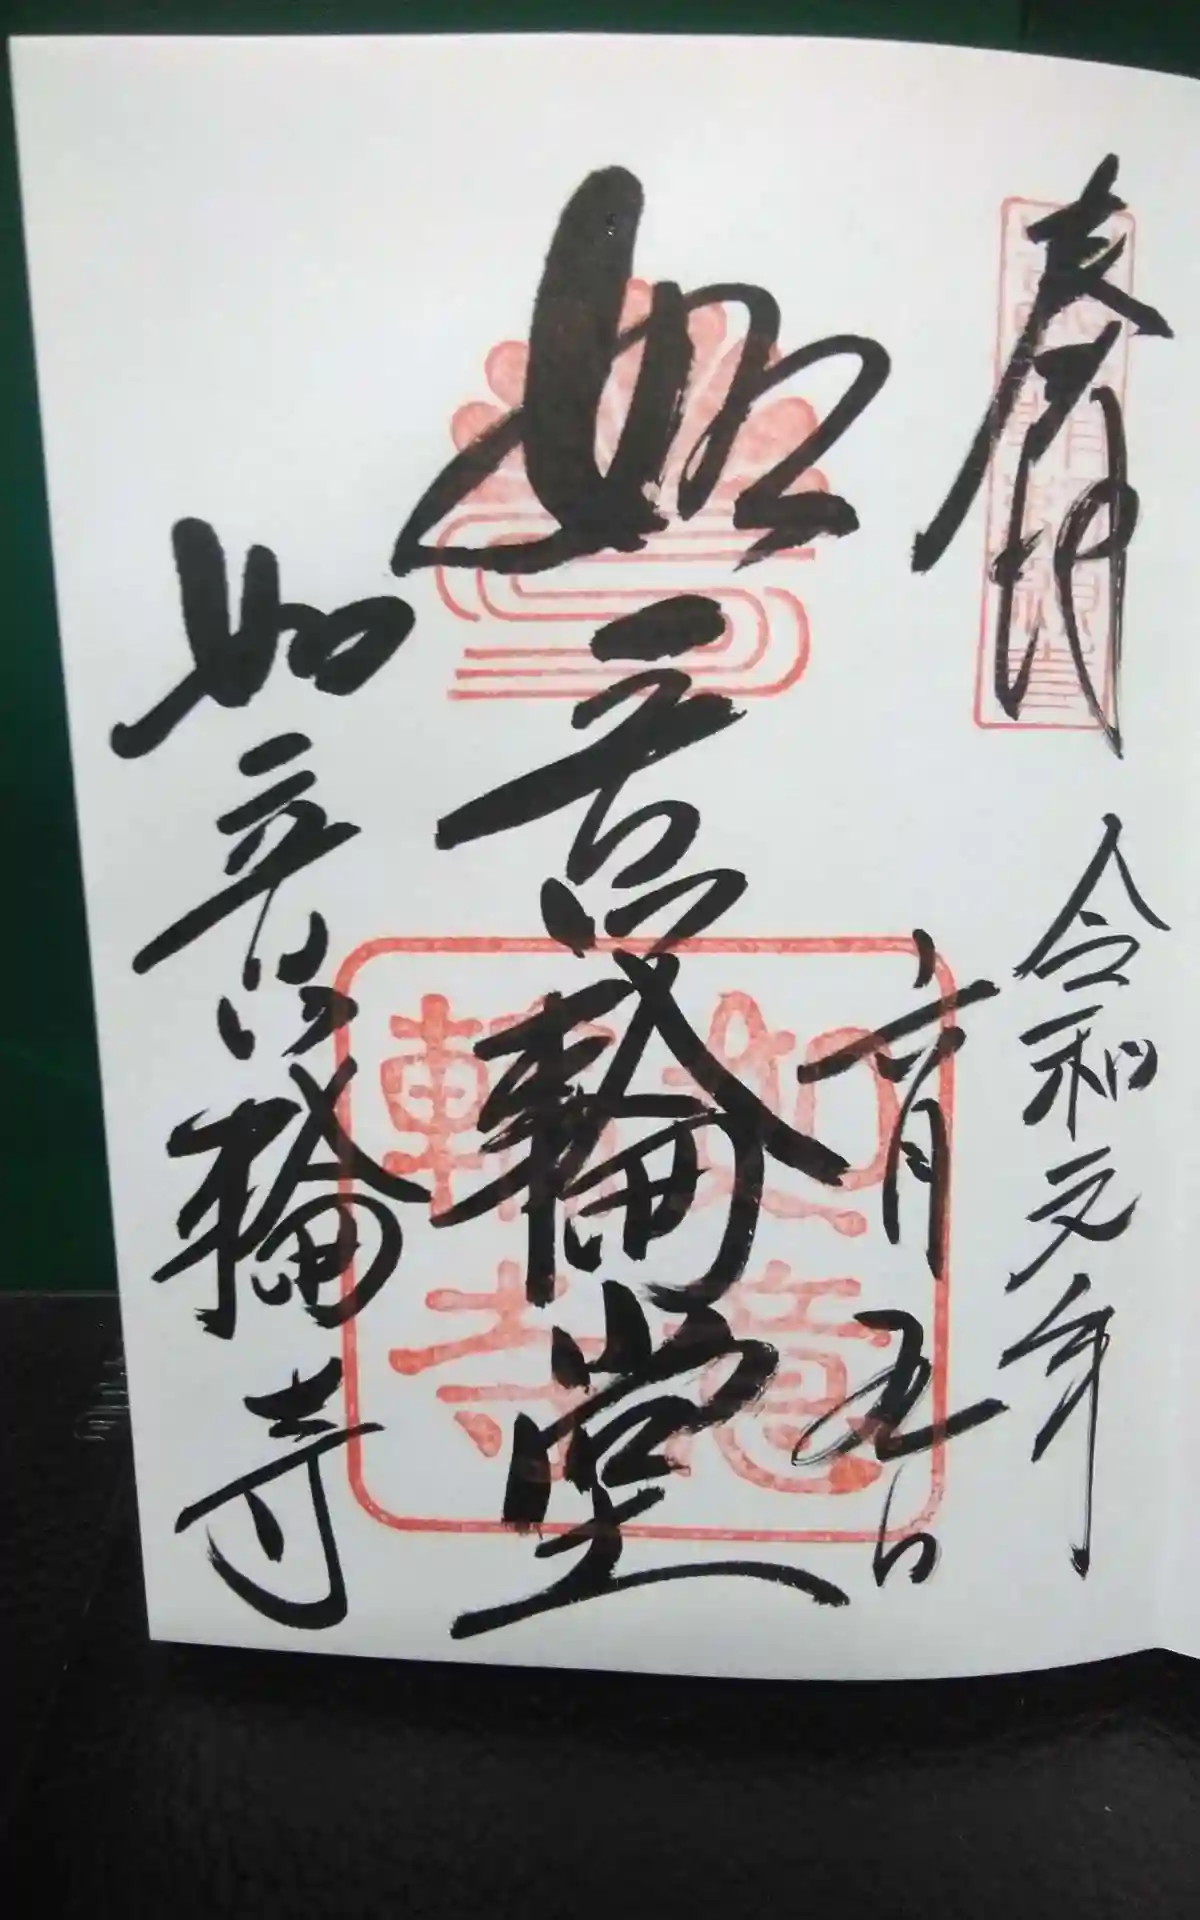 奉拝
令和元年
六月五日
如意輪堂
如意輪寺
如意
輪寺